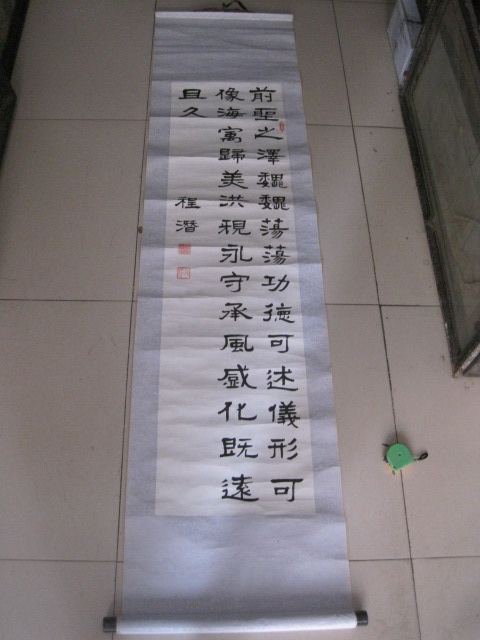 前聖之澤巍巍蕩蕩功德可述儀形可
像海寓歸美洪規永守承風感化既遠
且久
程潛